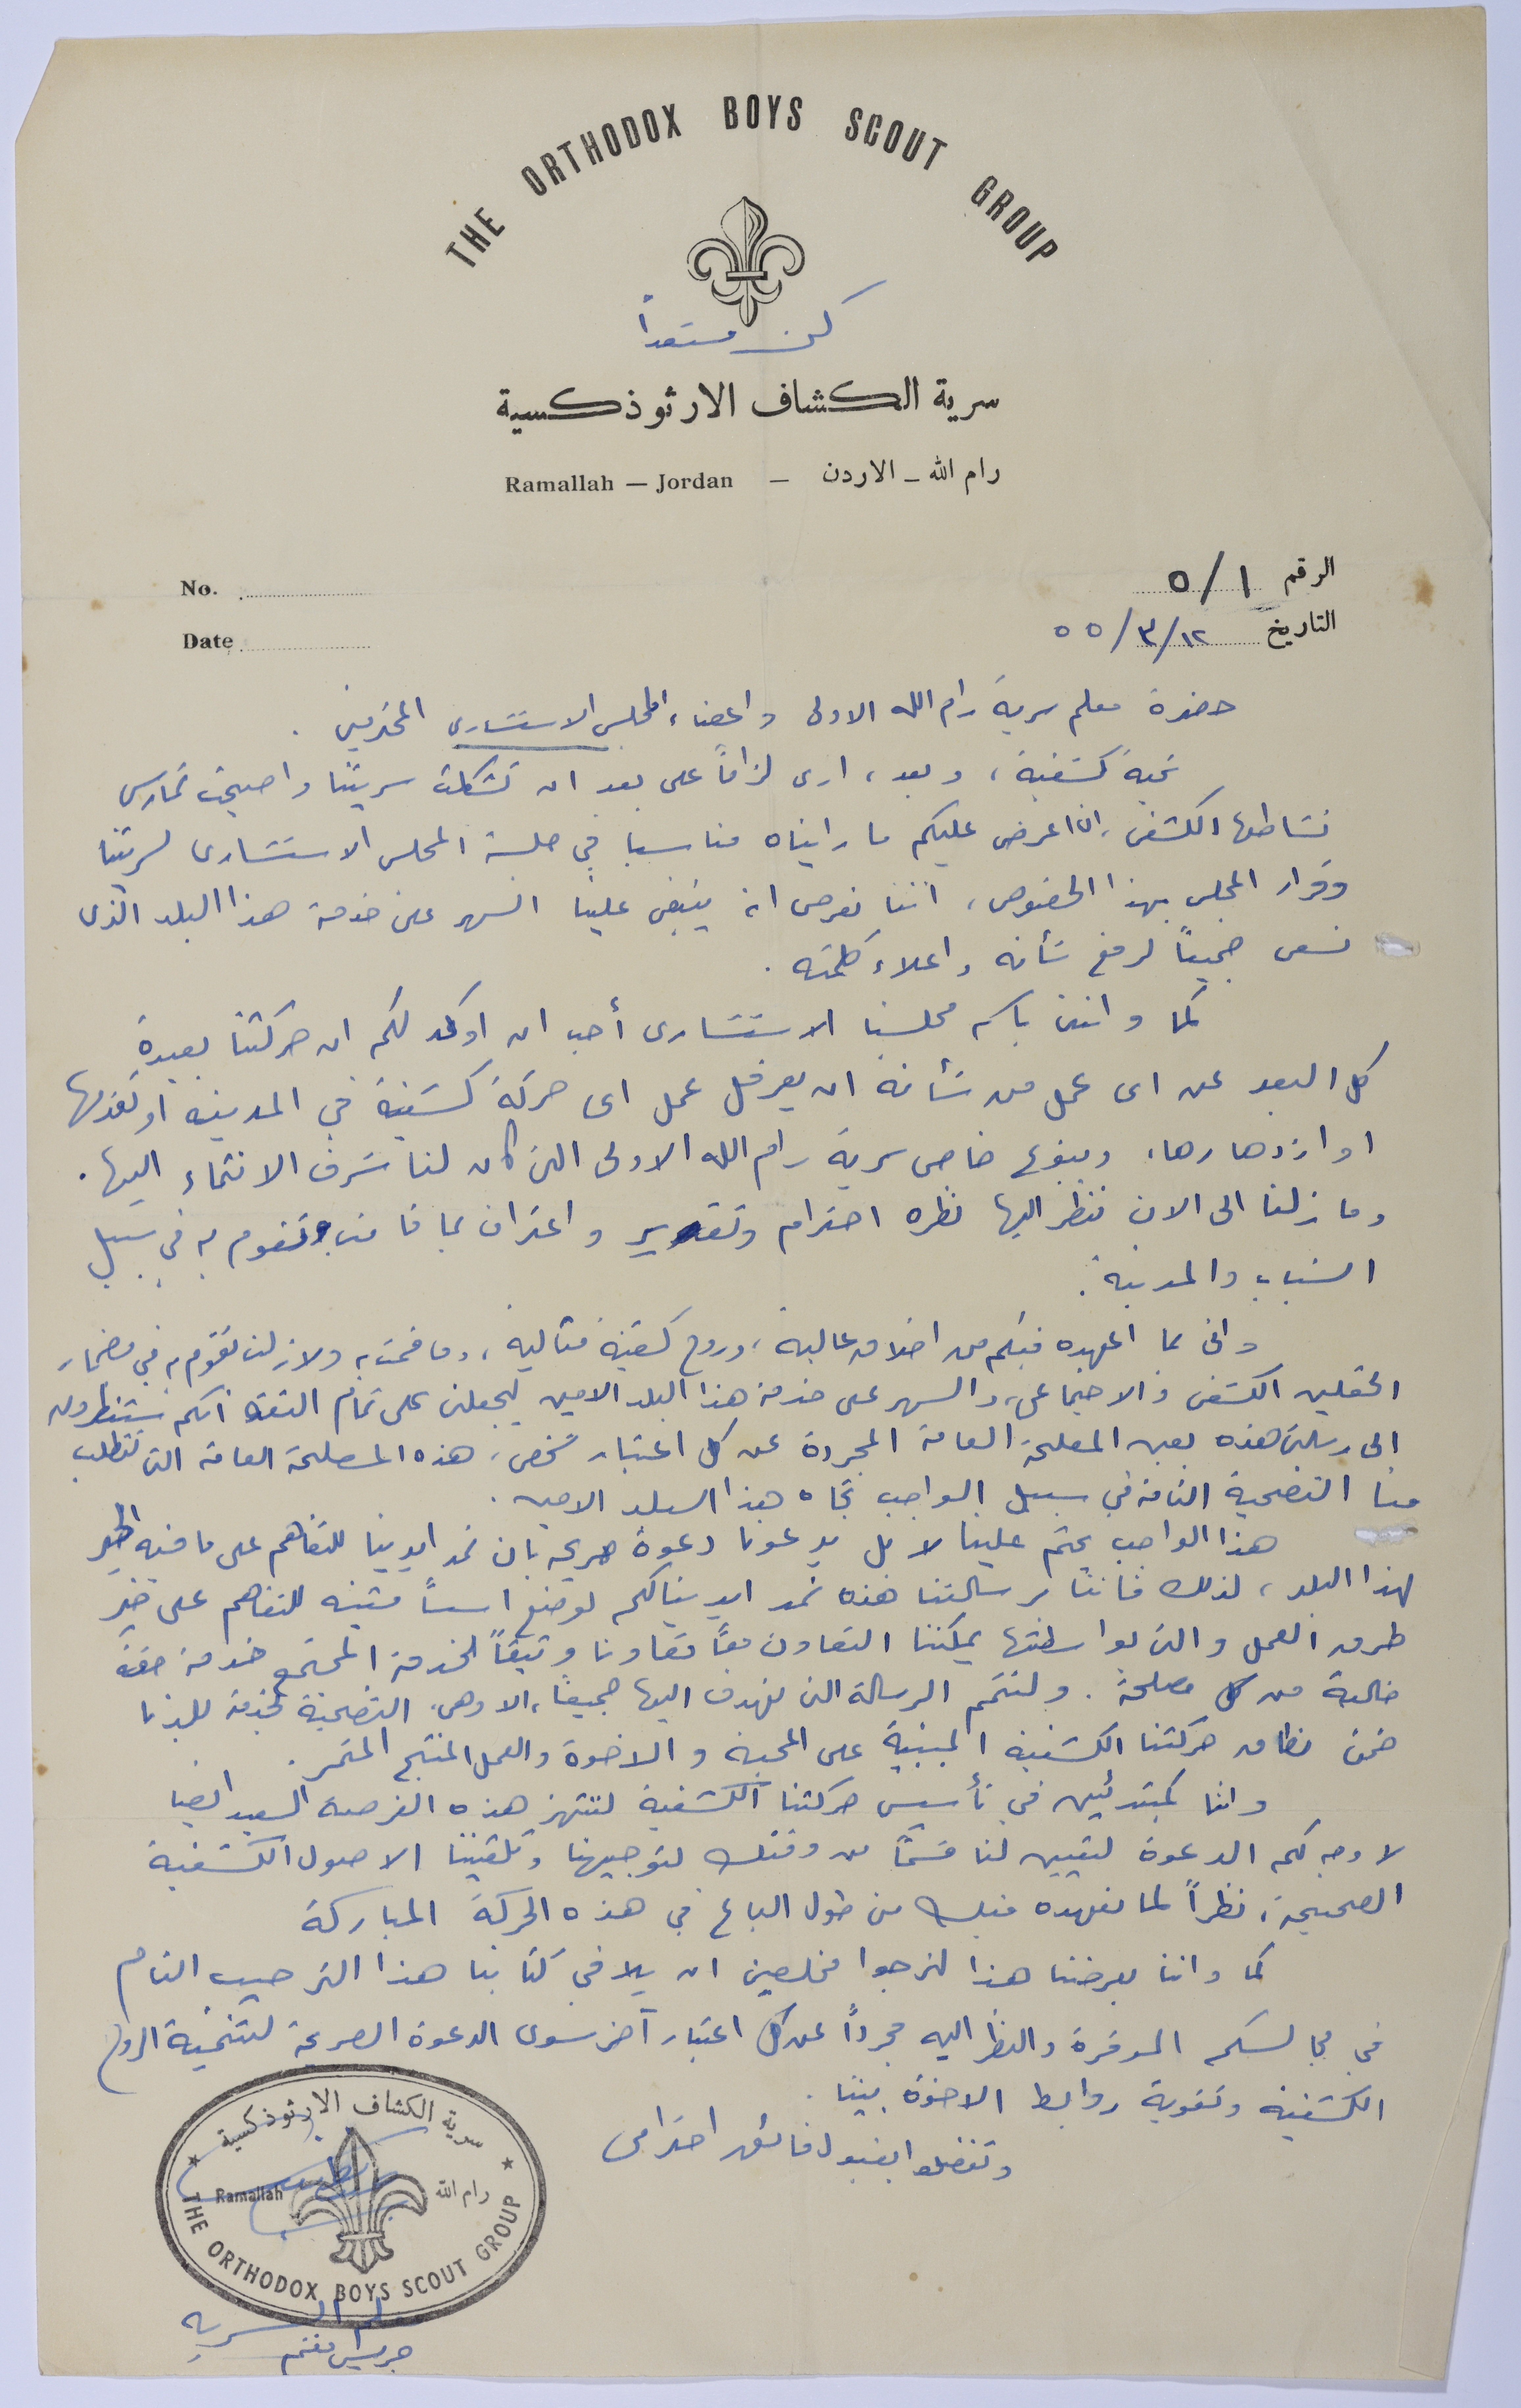 THE ORTHODOX BOYS SCOUT GROUP
كن مستعداً
سرية الكشاف الارثوذكسية
رام الله - الاردن - Ramallah — Jordan
الرقم ٥/١ No.
التاريخ ٥٥/٣/١٢ Date
حضرة معلم سرية رام الله الاولى واعضاء المجلس الاستشاري المحترمين .
تحية كشفية ، وبعد ، ارى لزاماً علي بعد ان تشكلت سريتنا واصبحت تمارس
نشاطها الكشفي ، ان اعرض عليكم ما رايناه مناسبا في جلسة المجلس الاستشاري لسريتنا
وقرار المجلس بهذا الخصوص ، اننا نعرض انه ينبغي علينا السهر على خدمة هذا البلد الذي
نسعى جميعاً لرفع شأنه واعلاء كلمته .
كما وانني باسم مجلسنا الاستشاري أحب ان اوكد لكم ان حركتنا بعيدة
كل البعد عن اى عمل من شأنه ان يعرقل عمل اى حركة كشفية في المدينه او تقدمها
او ازدهارها ، وبنوع خاص سرية رام الله الاولى التي كان لنا شرف الانتماء اليها .
وما زلنا الى الان ننظر اليها نظره احترام وتقدير واعتراف بما قامت وتقوم به في سبيل
الشباب والمدينة .
واني لما اعهده فيكم من اخلاق عالية ، وروح كشفية مثالية ، وما قمت به ولازلت تقوم به في مضمار
الحقلين الكشفي والاجتماعي ، والسهر على خدمة هذا البلد الامين ليجعلني على تمام الثقة انكم ستنظرون
الى رسالتي هذه بعين المصلحة العامة المجردة عن كل اعتبار شخصي ، هذه المصلحة العامة التي تتطلب
منا التضحية التامة في سبيل الواجب تجاه هذا البلد الامين .
هذا الواجب يحتم علينا لا بل يدعونا دعوة صريحة بان نمد ايدينا للتفاهم على ما فيه الخير
لهذا البلد ، لذلك فاننا برسالتنا هذه نمد ايدينا لكم لوضع اسساً متينه للتفاهم على خير
طرق العمل والتي بواسطتها يمكننا التعاون معاً تعاونا وثيقاً لخدمة المجتمع خدمة حقه
خالية من كل مصلحة . ولنتمم الرسالة التي نهدف اليها جميعاً ، الا وهي التضحية لخدمة بلدنا
ضمن نطاق حركتنا الكشفية المبنية على المحبة والاخوة والعمل المنتج المثمر .
واننا كمبتدئين في تأسيس حركتنا الكشفية لننتهز هذه الفرصة السعيد ايضا
لاوجه لكم الدعوة لتعيين لنا قسماً من وقتك لتوجيهنا وتلقيننا الاصول الكشفية
الصحيحة ، نظراً لما نعهده فيك من طول الباع في هذه الحركة المباركة
كما واننا بعرضنا هذا لنرجوا مخلصين ان يلاقي كتابنا هذا الترحيب التام
في مجالسكم الموقرة والنظر اليه مجرداً عن كل اعتبار آخر سوى الدعوة الصريحة لتنمية الروح
الكشفية وتقوية روابط الاخوة بيننا .
وتفضلوا بقبول فائق احترامي
سرية الكشاف الارثوذكسية
Ramallah رام الله
THE ORTHODOX BOYS SCOUT GROUP
السرية